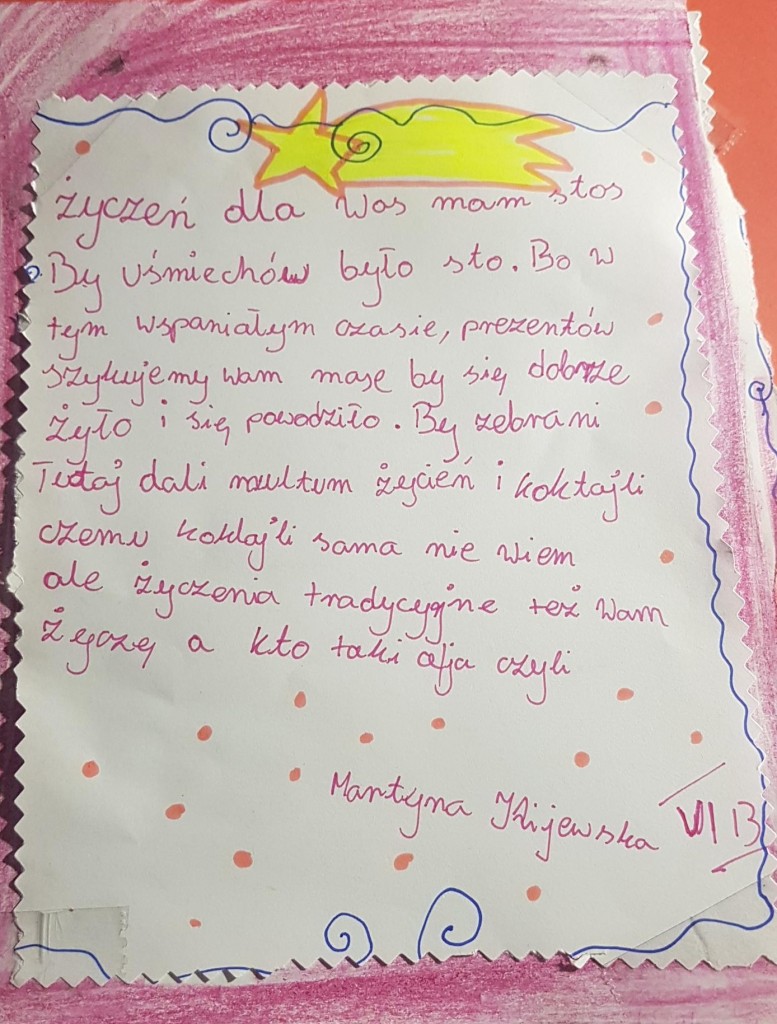 życzeń dla Was mam stos
By uśmiechów było sto. Bo w
tym wspaniałym czasie, prezentów
szykujemy wam masę by się dobrze
żyło i się powodziło. By zebrani
Tutaj dali multum życień i koktajli
czemu koktajli sama nie wiem
ale życzenia tradycyjne też wam
życzę a kto taki ja czyli
Martyna Kijewska VI B